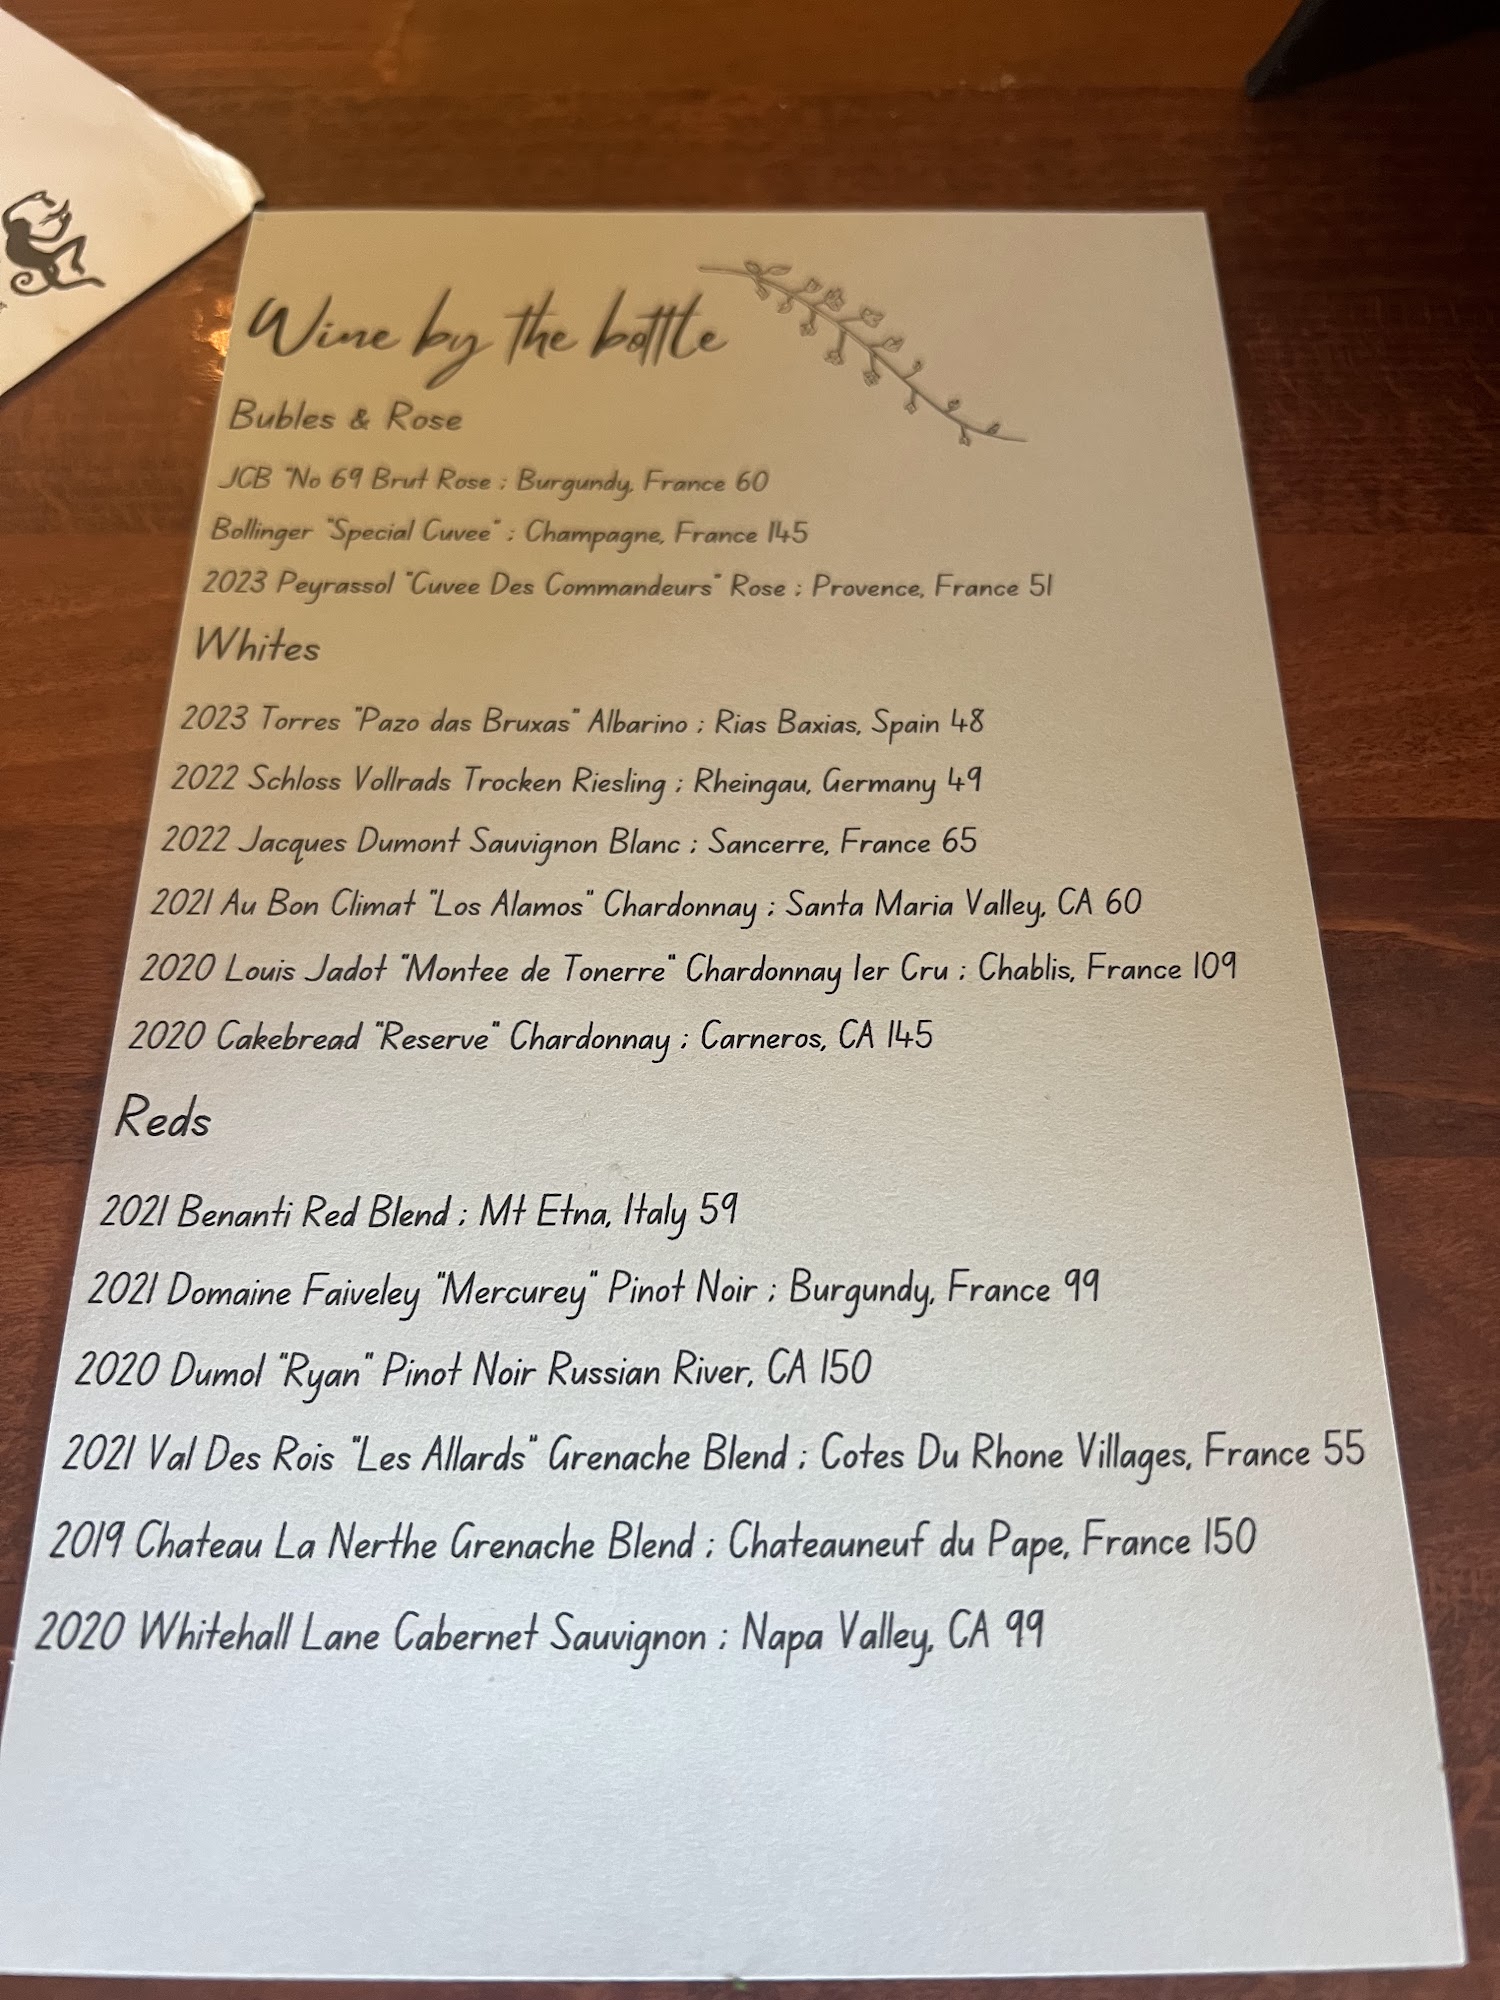 Wine by the bottle
Bubles & Rose
JCB "No 69 Brut Rose ; Burgundy, France 60
Bollinger "Special Cuvee" ; Champagne, France 145
2023 Peyrassol "Cuvee Des Commandeurs" Rose ; Provence, France 51
Whites
2023 Torres "Pazo das Bruxas" Albarino ; Rias Baxias, Spain 48
2022 Schloss Vollrads Trocken Riesling ; Rheingau, Germany 49
2022 Jacques Dumont Sauvignon Blanc ; Sancerre, France 65
2021 Au Bon Climat "Los Alamos" Chardonnay ; Santa Maria Valley, CA 60
2020 Louis Jadot "Montee de Tonerre" Chardonnay 1er Cru ; Chablis, France 109
2020 Cakebread "Reserve" Chardonnay ; Carneros, CA 145
Reds
2021 Benanti Red Blend ; Mt Etna, Italy 59
2021 Domaine Faiveley "Mercurey" Pinot Noir ; Burgundy, France 99
2020 Dumol "Ryan" Pinot Noir Russian River, CA 150
2021 Val Des Rois "Les Allards" Grenache Blend ; Cotes Du Rhone Villages, France 55
2019 Chateau La Nerthe Grenache Blend ; Chateauneuf du Pape, France 150
2020 Whitehall Lane Cabernet Sauvignon ; Napa Valley, CA 99